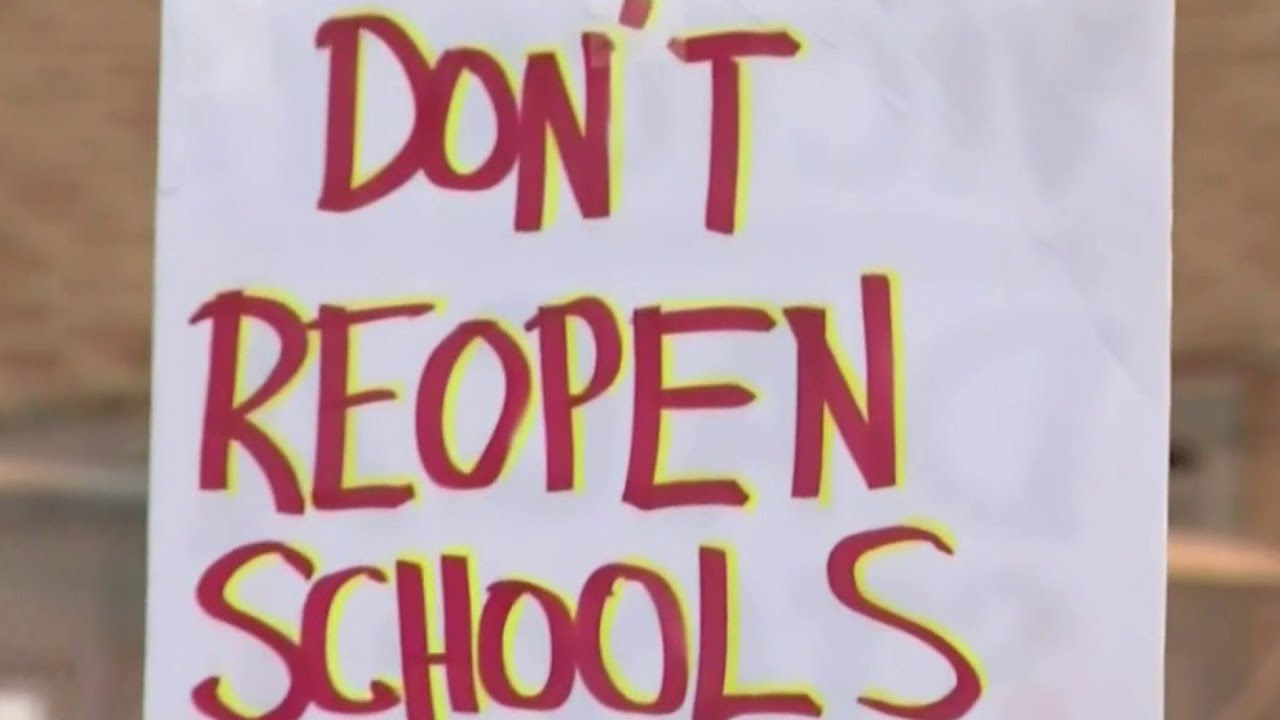 DON'T
REOPEN
SCHOOLS